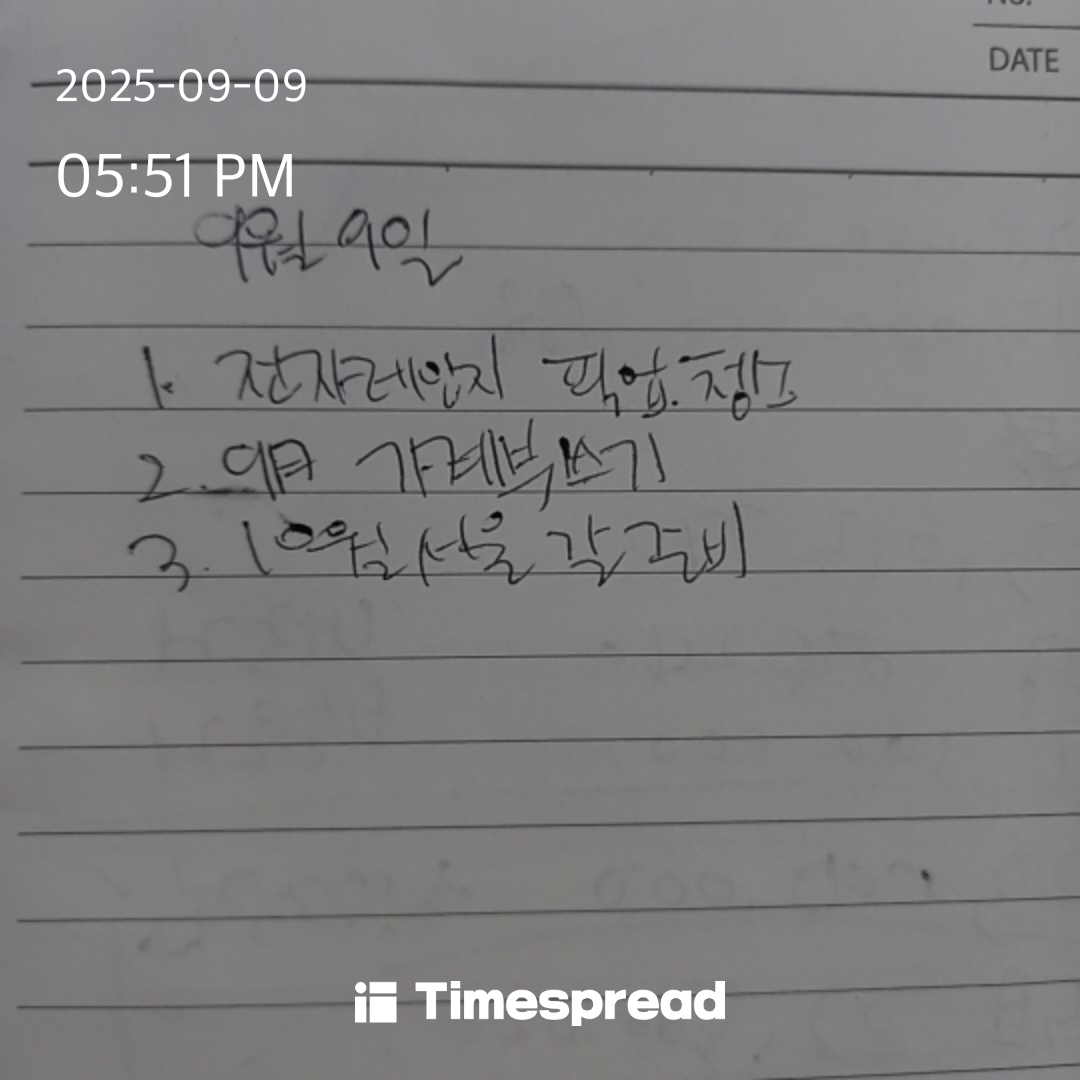 DATE
2025-09-09
05:51 PM
9월 9일
1. 전자레인지 픽업.청소
2. 가계부쓰기
3. 10월 서울 갈 준비
Timespread